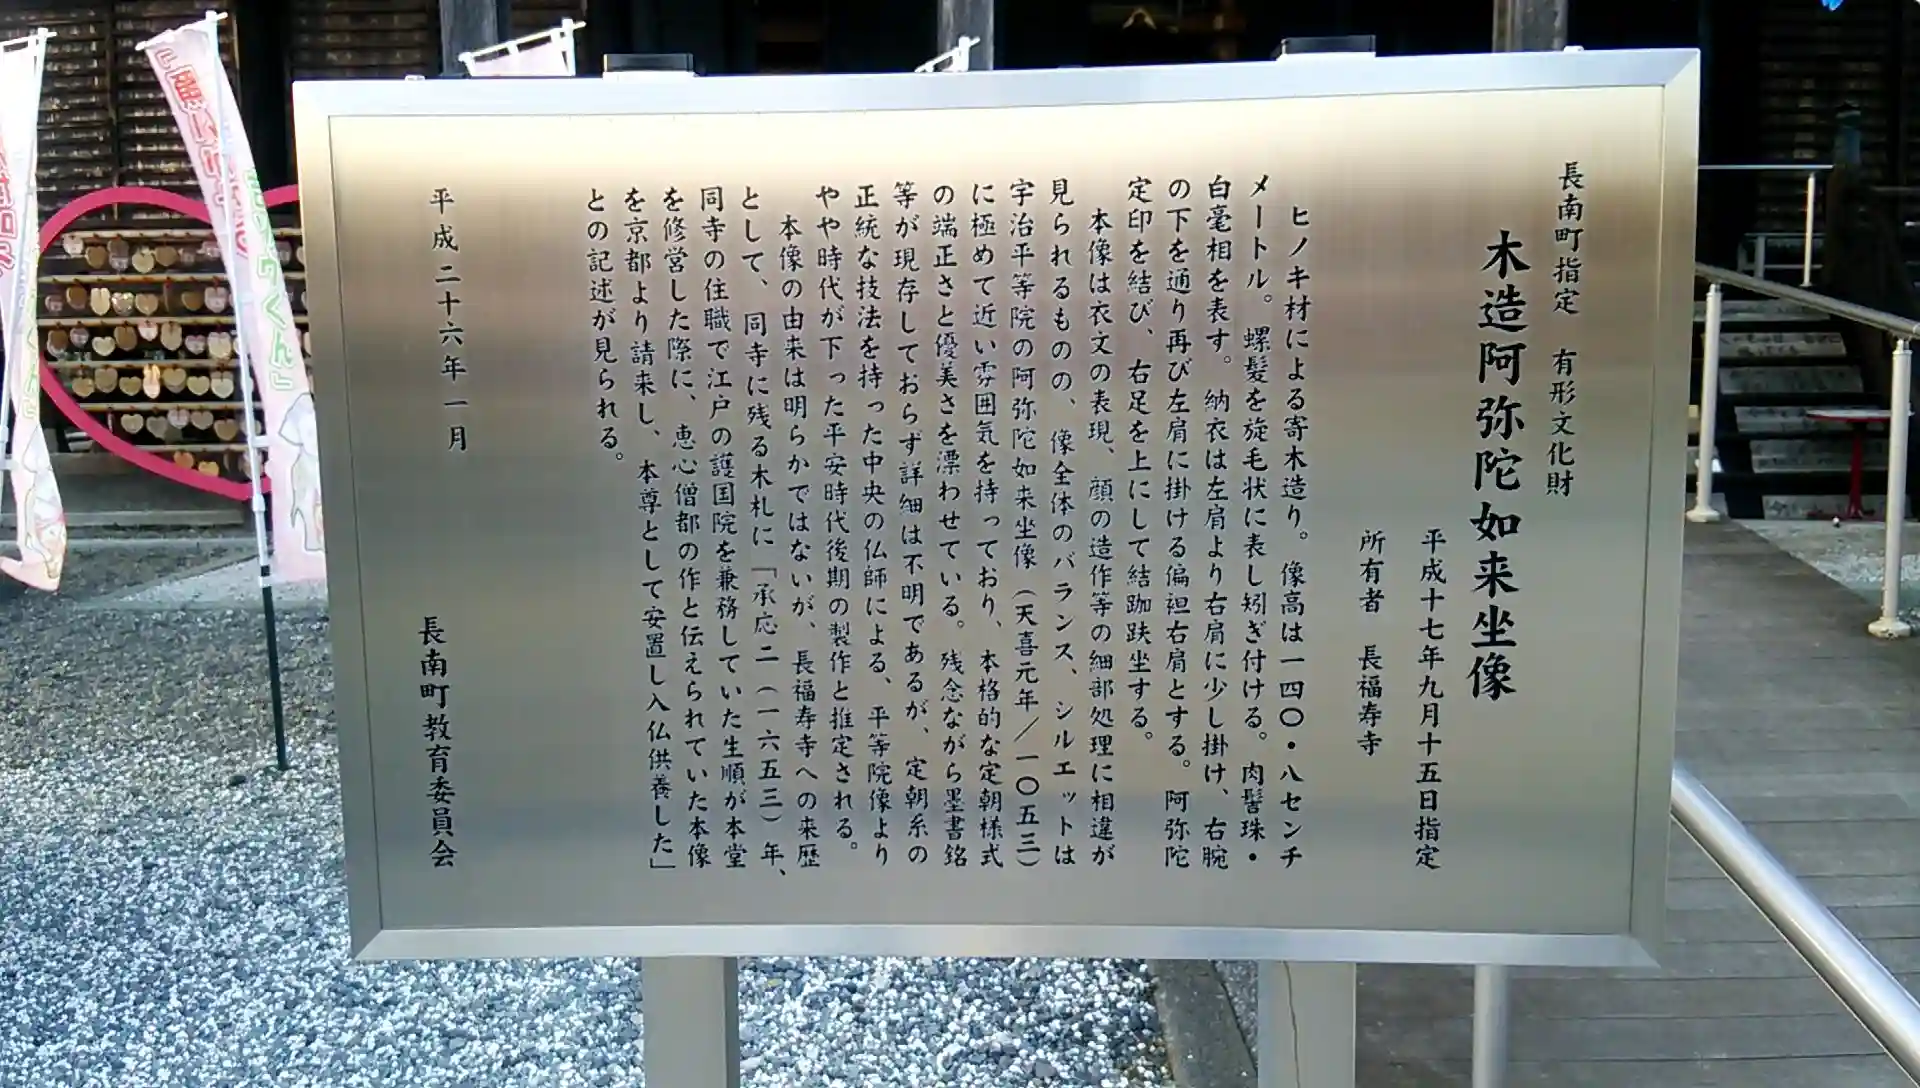 長南町指定　有形文化財
木造阿弥陀如来坐像
平成十七年九月十五日指定
所有者　長福寿寺
ヒノキ材による寄木造り。像高は一四〇・八センチ
メートル。螺髪を旋毛状に表し矧ぎ付ける。肉髻珠・
白毫相を表す。納衣は左肩より右肩に少し掛け、右腕
の下を通り再び左肩に掛ける偏袒右肩とする。阿弥陀
定印を結び、右足を上にして結跏趺坐する。
本像は衣文の表現、顔の造作等の細部処理に相違が
見られるものの、像全体のバランス、シルエットは
宇治平等院の阿弥陀如来坐像（天喜元年／一〇五三）
に極めて近い雰囲気を持っており、本格的な定朝様式
の端正さと優美さを漂わせている。残念ながら墨書銘
等が現存しておらず詳細は不明であるが、定朝系の
正統な技法を持った中央の仏師による、平等院像より
やや時代が下った平安時代後期の製作と推定される。
本像の由来は明らかではないが、長福寿寺への来歴
として、同寺に残る木札に「承応二（一六五三）年、
同寺の住職で江戸の護国院を兼務していた生順が本堂
を修営した際に、恵心僧都の作と伝えられていた本像
を京都より請来し、本尊として安置し入仏供養した」
との記述が見られる。
平成二十六年一月
長南町教育委員会